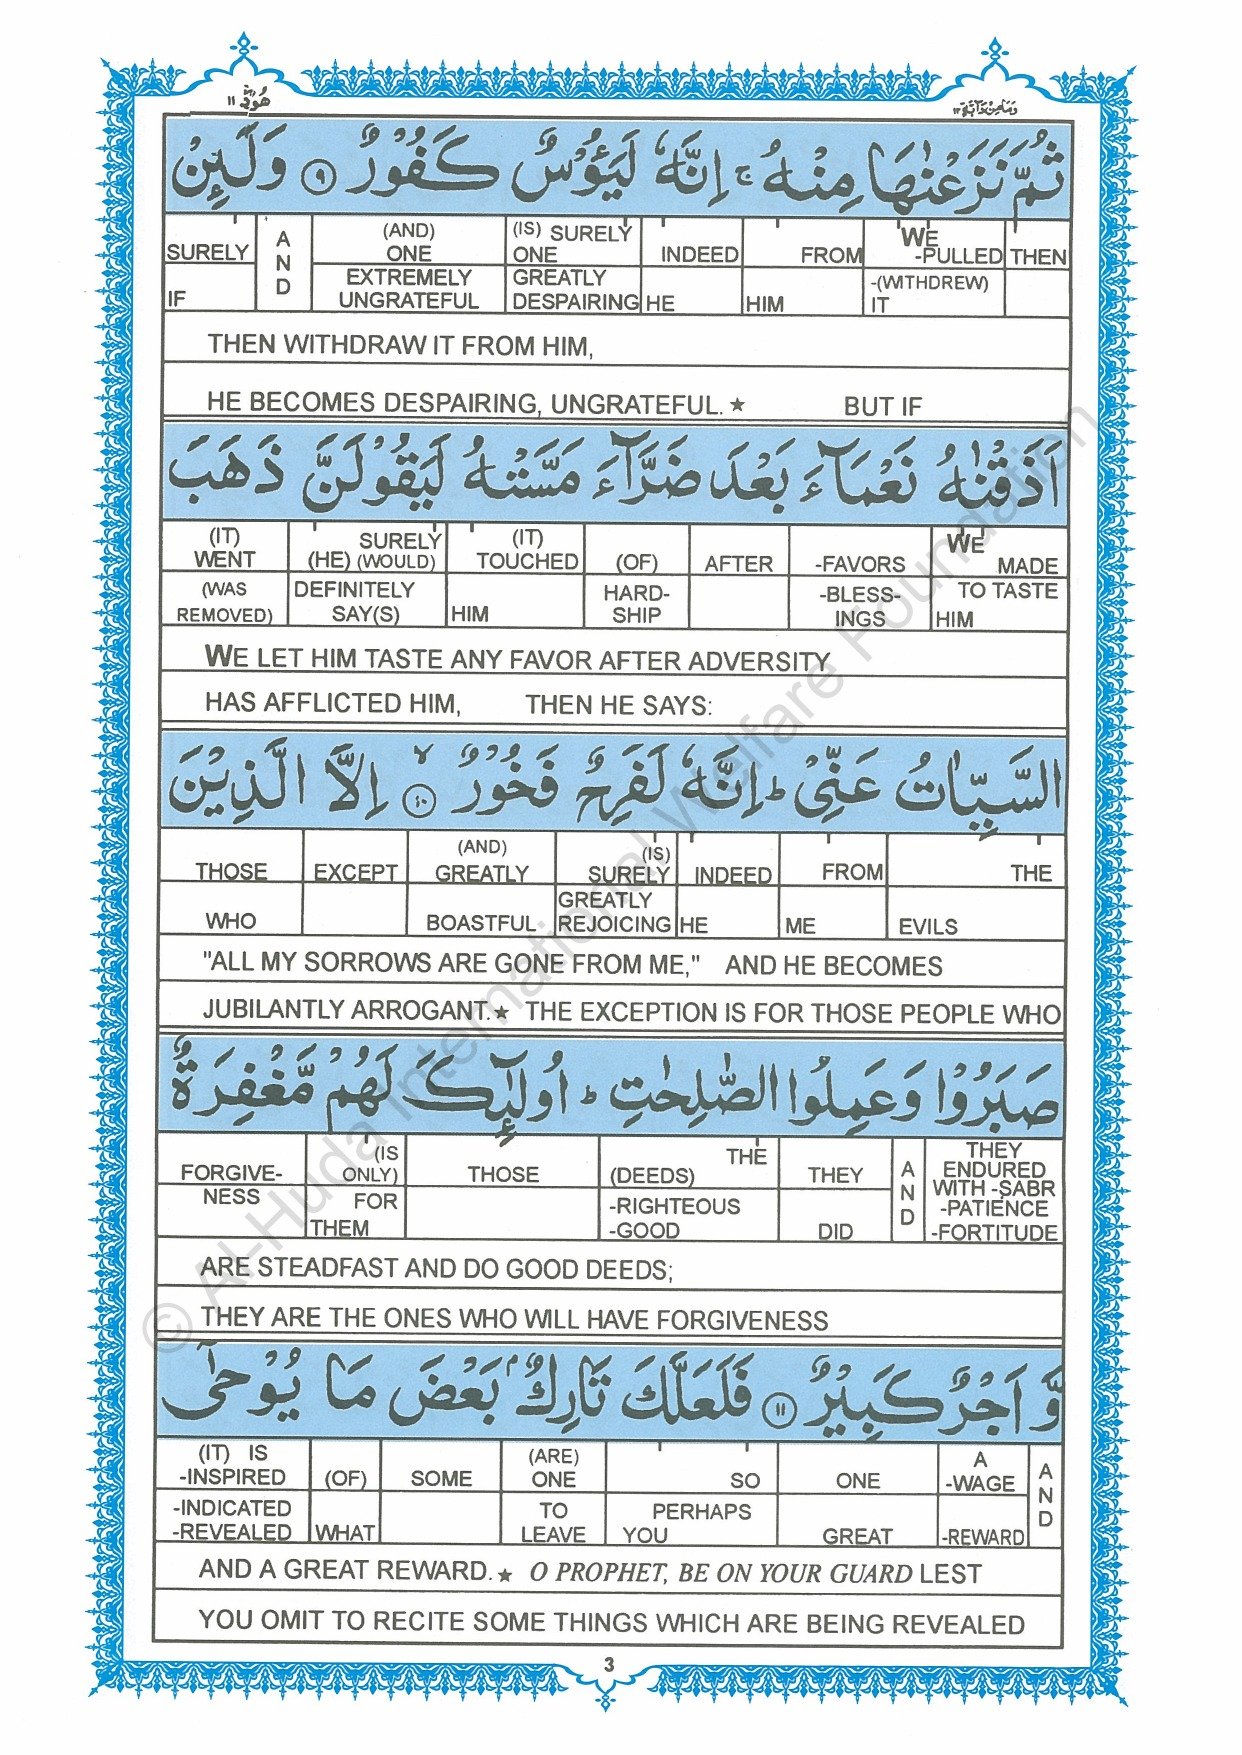 هُوْد ۱۱
وَمَا مِنْ دَآبَّةٍ ۱۲
ثُمَّ نَزَعْنٰهَا مِنْهُ ۚ اِنَّهٗ لَيَـُٔوْسٌ كَفُوْرٌ ۹ وَلَئِنْ
SURELY AND (AND) ONE (IS) SURELY ONE INDEED FROM WE -PULLED THEN
IF EXTREMELY UNGRATEFUL GREATLY DESPAIRING HE HIM -(WITHDREW) IT
THEN WITHDRAW IT FROM HIM,
HE BECOMES DESPAIRING, UNGRATEFUL.★ BUT IF
اَذَقْنٰهُ نَعْمَآءَ بَعْدَ ضَرَّآءَ مَسَّتْهُ لَيَقُوْلَنَّ ذَهَبَ
(IT) WENT SURELY (HE) (WOULD) (IT) TOUCHED (OF) AFTER -FAVORS WE MADE
(WAS REMOVED) DEFINITELY SAY(S) HIM HARD-SHIP -BLESS-INGS TO TASTE HIM
WE LET HIM TASTE ANY FAVOR AFTER ADVERSITY
HAS AFFLICTED HIM, THEN HE SAYS:
السَّيِّاٰتُ عَنِّىْ ؕ اِنَّهٗ لَفَرِحٌ فَخُوْرٌ ۙ ۱۰ اِلَّا الَّذِيْنَ
THOSE EXCEPT (AND) GREATLY (IS) SURELY INDEED FROM THE
WHO BOASTFUL GREATLY REJOICING HE ME EVILS
"ALL MY SORROWS ARE GONE FROM ME," AND HE BECOMES
JUBILANTLY ARROGANT.★ THE EXCEPTION IS FOR THOSE PEOPLE WHO
صَبَرُوْا وَعَمِلُوا الصّٰلِحٰتِ ؕ اُولٰٓئِكَ لَهُمْ مَّغْفِرَةٌ
FORGIVE- (IS ONLY) THOSE THE (DEEDS) THEY AND THEY ENDURED WITH -SABR
NESS FOR THEM -RIGHTEOUS -GOOD DID -PATIENCE -FORTITUDE
ARE STEADFAST AND DO GOOD DEEDS;
THEY ARE THE ONES WHO WILL HAVE FORGIVENESS
وَّ اَجْرٌ كَبِيْرٌ ۱۱ فَلَعَلَّكَ تَارِكٌۢ بَعْضَ مَا يُوْحٰٓى
(IT) IS -INSPIRED (OF) SOME (ARE) ONE SO ONE A -WAGE AND
-INDICATED -REVEALED WHAT TO LEAVE PERHAPS YOU GREAT -REWARD
AND A GREAT REWARD.★ O PROPHET, BE ON YOUR GUARD LEST
YOU OMIT TO RECITE SOME THINGS WHICH ARE BEING REVEALED
3
© Al-Huda International Welfare Foundation